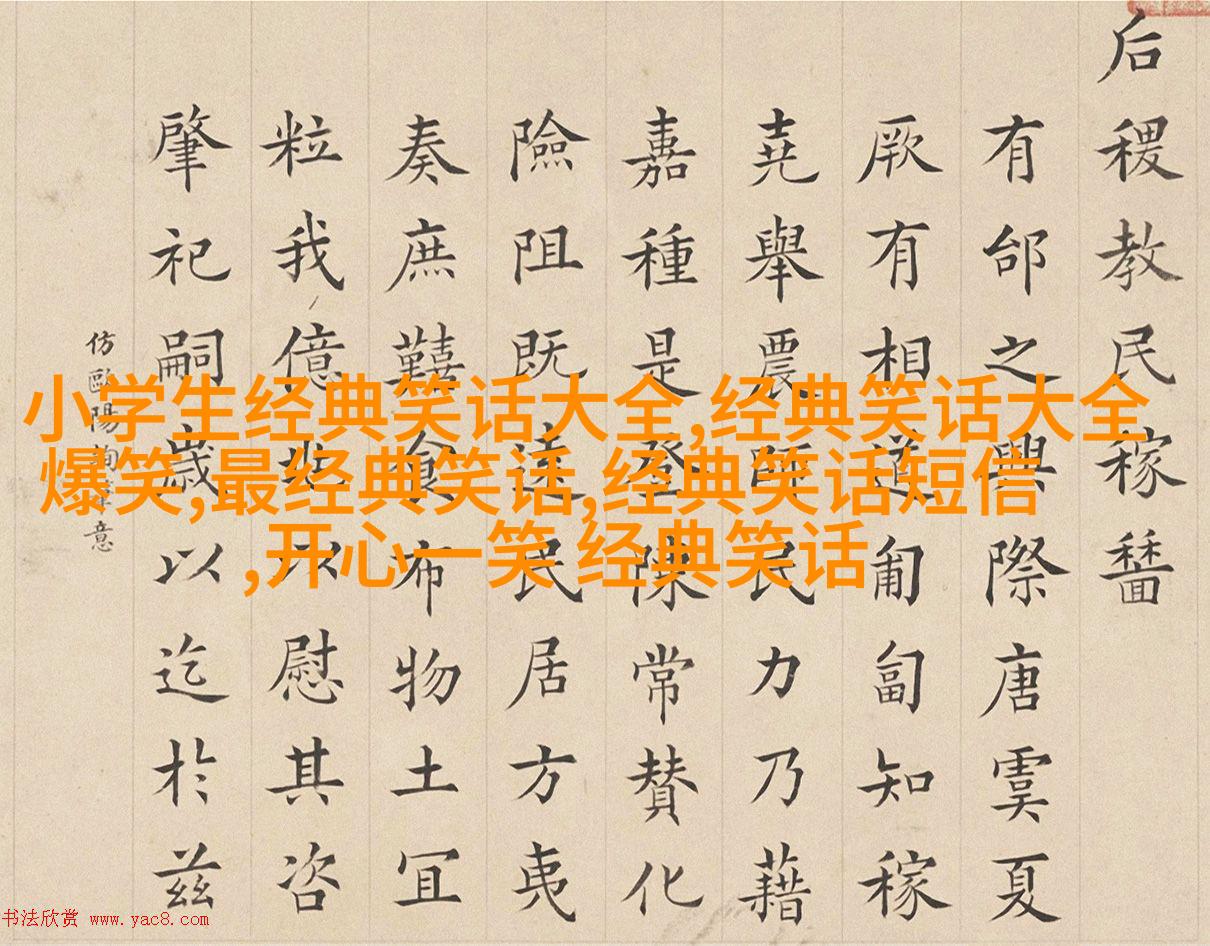 后稷教民稼穡
有邰之興際唐虞夏
厥有相道匍匐知稼
堯舉農師民力乃藉
嘉種是登陳常賛化
險阻既遠民居方夷
奏庶囏食布物土冝
粒我億兆以慰其咨
肇祀嗣歲以迄於茲
仿歐陽詢筆意
小学生经典笑话大全,经典笑话大全
爆笑,最经典笑话,经典笑话短信
,开心一笑 经典笑话
书法欣赏 www.yac8.com